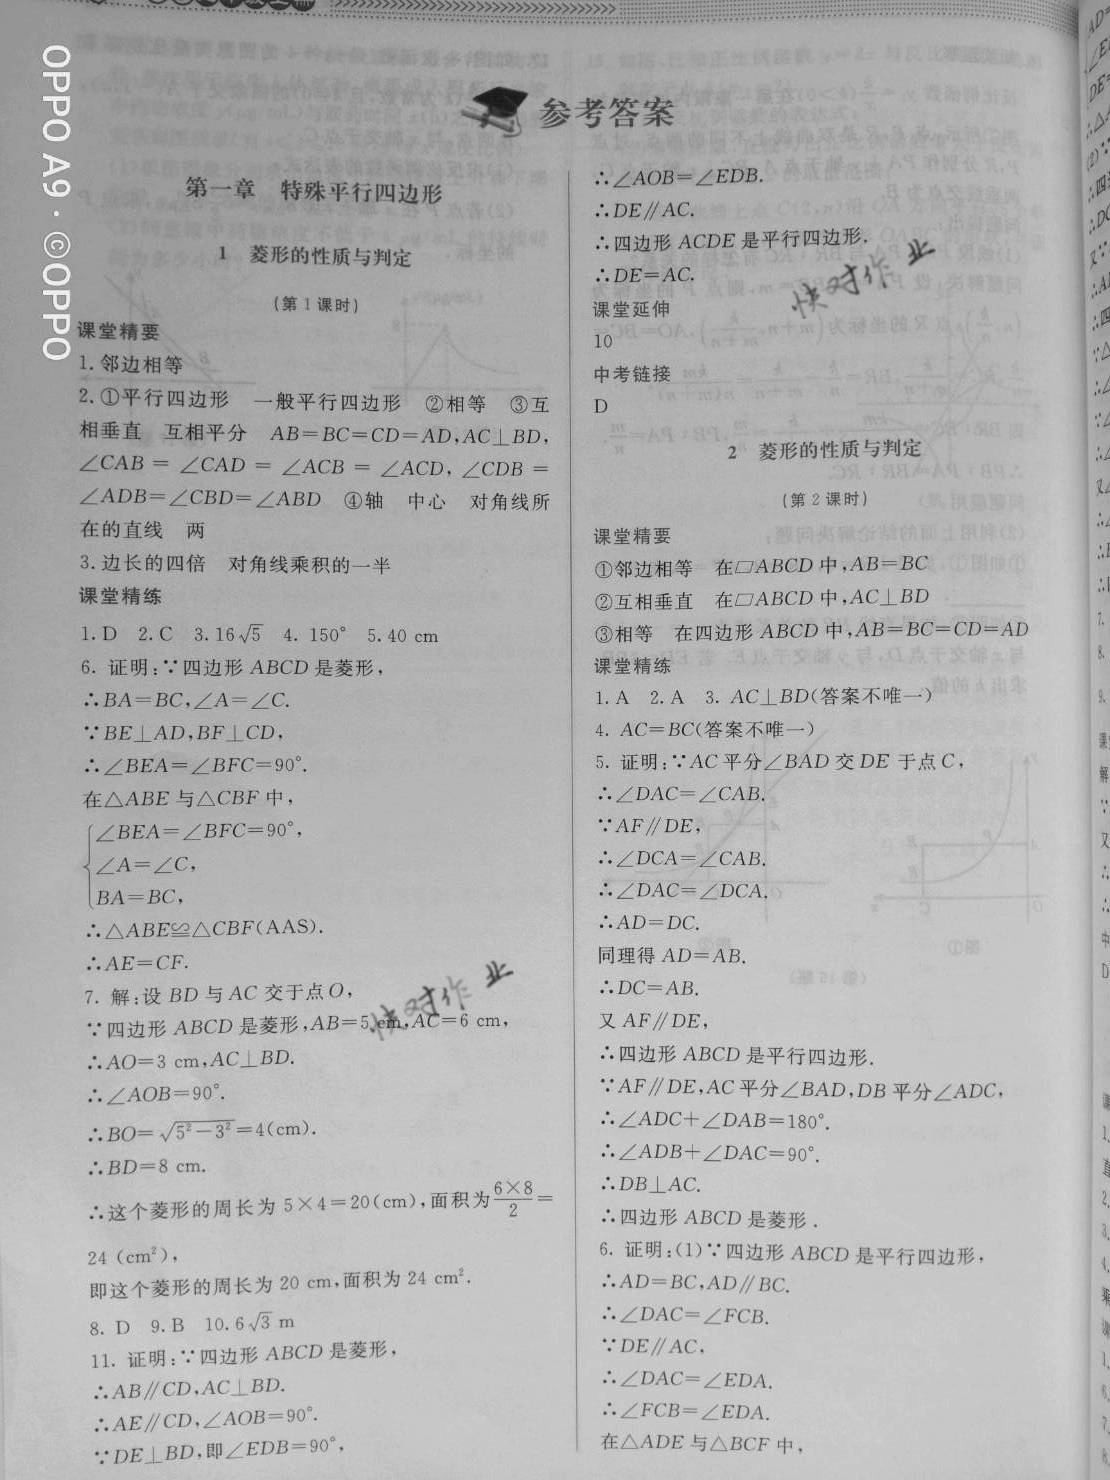 参考答案
第一章 特殊平行四边形
1 菱形的性质与判定
(第1课时)
课堂精要
1.邻边相等
2.①平行四边形 一般平行四边形 ②相等 ③互
相垂直 互相平分 AB=BC=CD=AD,AC⊥BD,
∠CAB=∠CAD=∠ACB=∠ACD,∠CDB=
∠ADB=∠CBD=∠ABD ④轴 中心 对角线所
在的直线 两
3.边长的四倍 对角线乘积的一半
课堂精练
1.D 2.C 3.16√5 4. 150° 5.40 cm
6. 证明:∵四边形 ABCD 是菱形,
∴BA=BC,∠A=∠C.
∵BE⊥AD,BF⊥CD,
∴∠BEA=∠BFC=90°.
在△ABE与△CBF中,
∠BEA=∠BFC=90°,
∠A=∠C,
BA=BC,
∴△ABE≌△CBF(AAS).
∴AE=CF.
7. 解:设 BD 与 AC 交于点O,
∵四边形 ABCD 是菱形,AB=5 cm,AC=6 cm,
∴AO=3 cm,AC⊥BD.
∴∠AOB=90°.
∴BO=√(5²-3²)=4(cm).
∴BD=8 cm.
∴这个菱形的周长为 5×4=20(cm),面积为 6×8/2 =
24 (cm²),
即这个菱形的周长为 20 cm,面积为 24 cm².
8. D 9.B 10.6√3 m
11. 证明:∵四边形 ABCD 是菱形,
∴AB∥CD,AC⊥BD.
∴AE∥CD,∠AOB=90°.
∵DE⊥BD,即∠EDB=90°,
∴∠AOB=∠EDB.
∴DE∥AC.
∴四边形 ACDE 是平行四边形.
∴DE=AC.
课堂延伸
10
中考链接
D
2 菱形的性质与判定
(第2课时)
课堂精要
①邻边相等 在▱ABCD 中,AB=BC
②互相垂直 在▱ABCD 中,AC⊥BD
③相等 在四边形 ABCD 中,AB=BC=CD=AD
课堂精练
1.A 2.A 3. AC⊥BD(答案不唯一)
4. AC=BC(答案不唯一)
5. 证明:∵AC 平分∠BAD 交 DE 于点C,
∴∠DAC=∠CAB.
∵AF∥DE,
∴∠DCA=∠CAB.
∴∠DAC=∠DCA.
∴AD=DC.
同理得 AD=AB.
∴DC=AB.
又 AF∥DE,
∴四边形 ABCD 是平行四边形.
∵AF∥DE,AC 平分∠BAD,DB 平分∠ADC,
∴∠ADC+∠DAB=180°.
∴∠ADB+∠DAC=90°.
∴DB⊥AC.
∴四边形 ABCD 是菱形.
6. 证明:(1)∵四边形 ABCD 是平行四边形,
∴AD=BC,AD∥BC.
∴∠DAC=∠FCB.
∵DE∥AC,
∴∠DAC=∠EDA.
∴∠FCB=∠EDA.
在△ADE 与△BCF 中,
快对作业
快对作业
OPPO A9 · ©OPPO